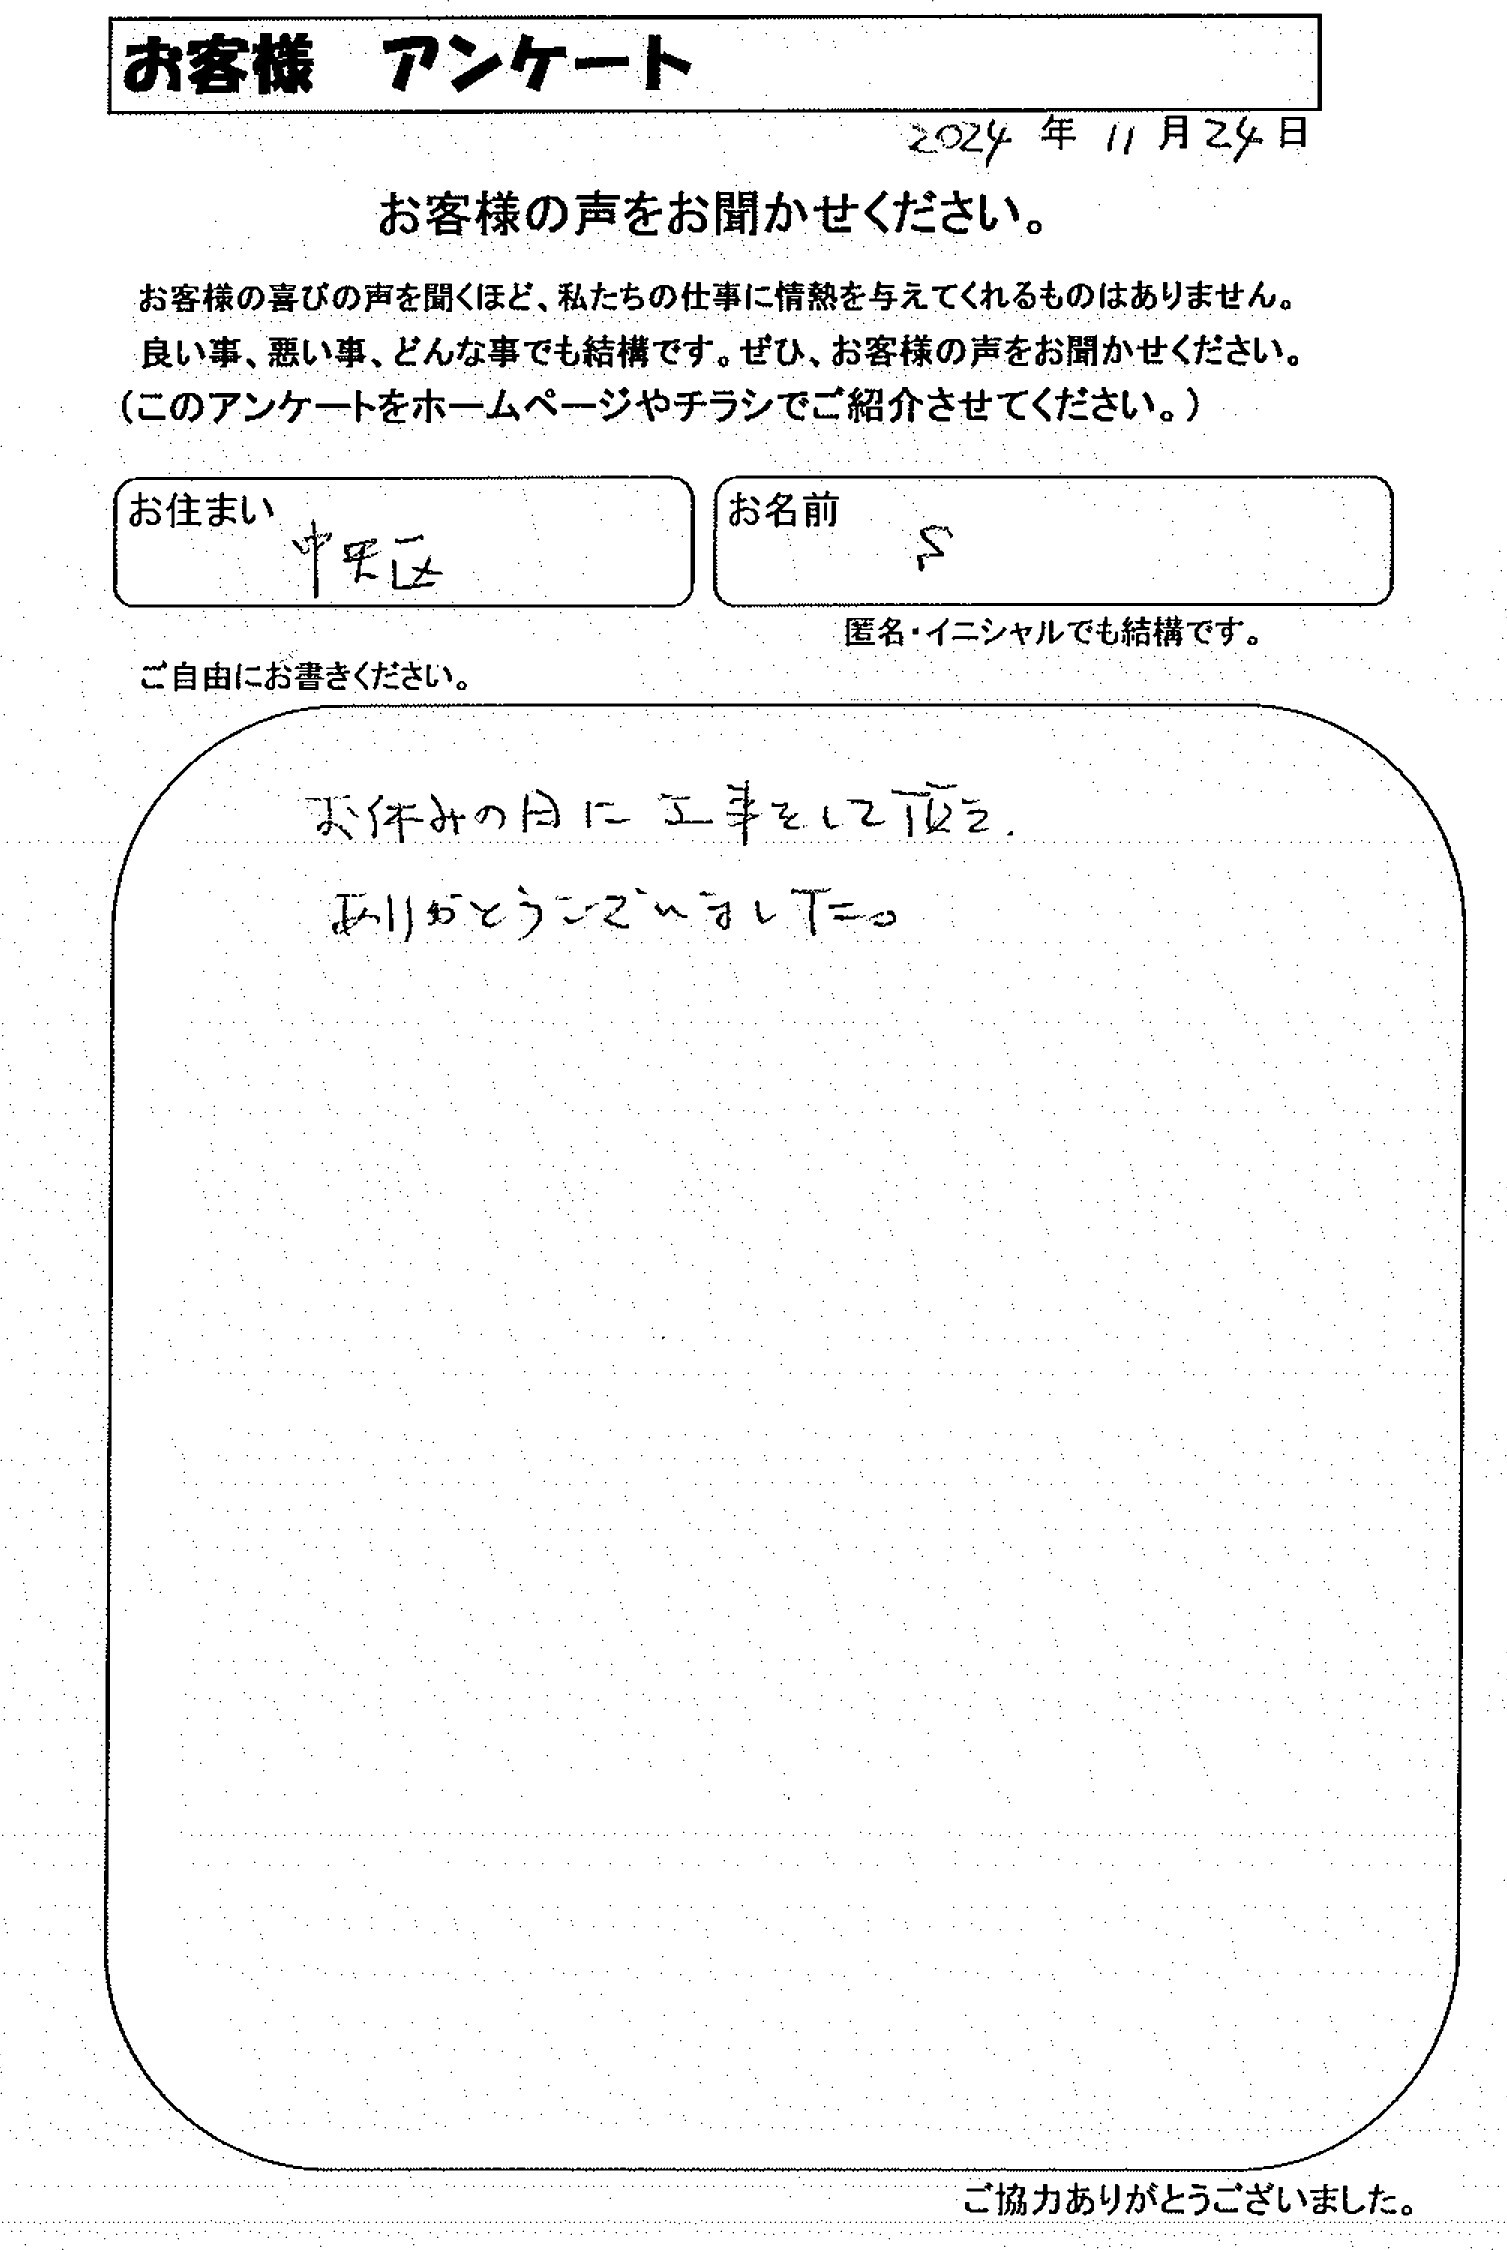 お客様 アンケート
2024年11月24日
お客様の声をお聞かせください。
お客様の喜びの声を聞くほど、私たちの仕事に情熱を与えてくれるものはありません。
良い事、悪い事、どんな事でも結構です。ぜひ、お客様の声をお聞かせください。
（このアンケートをホームページやチラシでご紹介させてください。）
お住まい 中央区
お名前 S
匿名・イニシャルでも結構です。
ご自由にお書きください。
お休みの日に工事をして頂き、
ありがとうございました。
ご協力ありがとうございました。